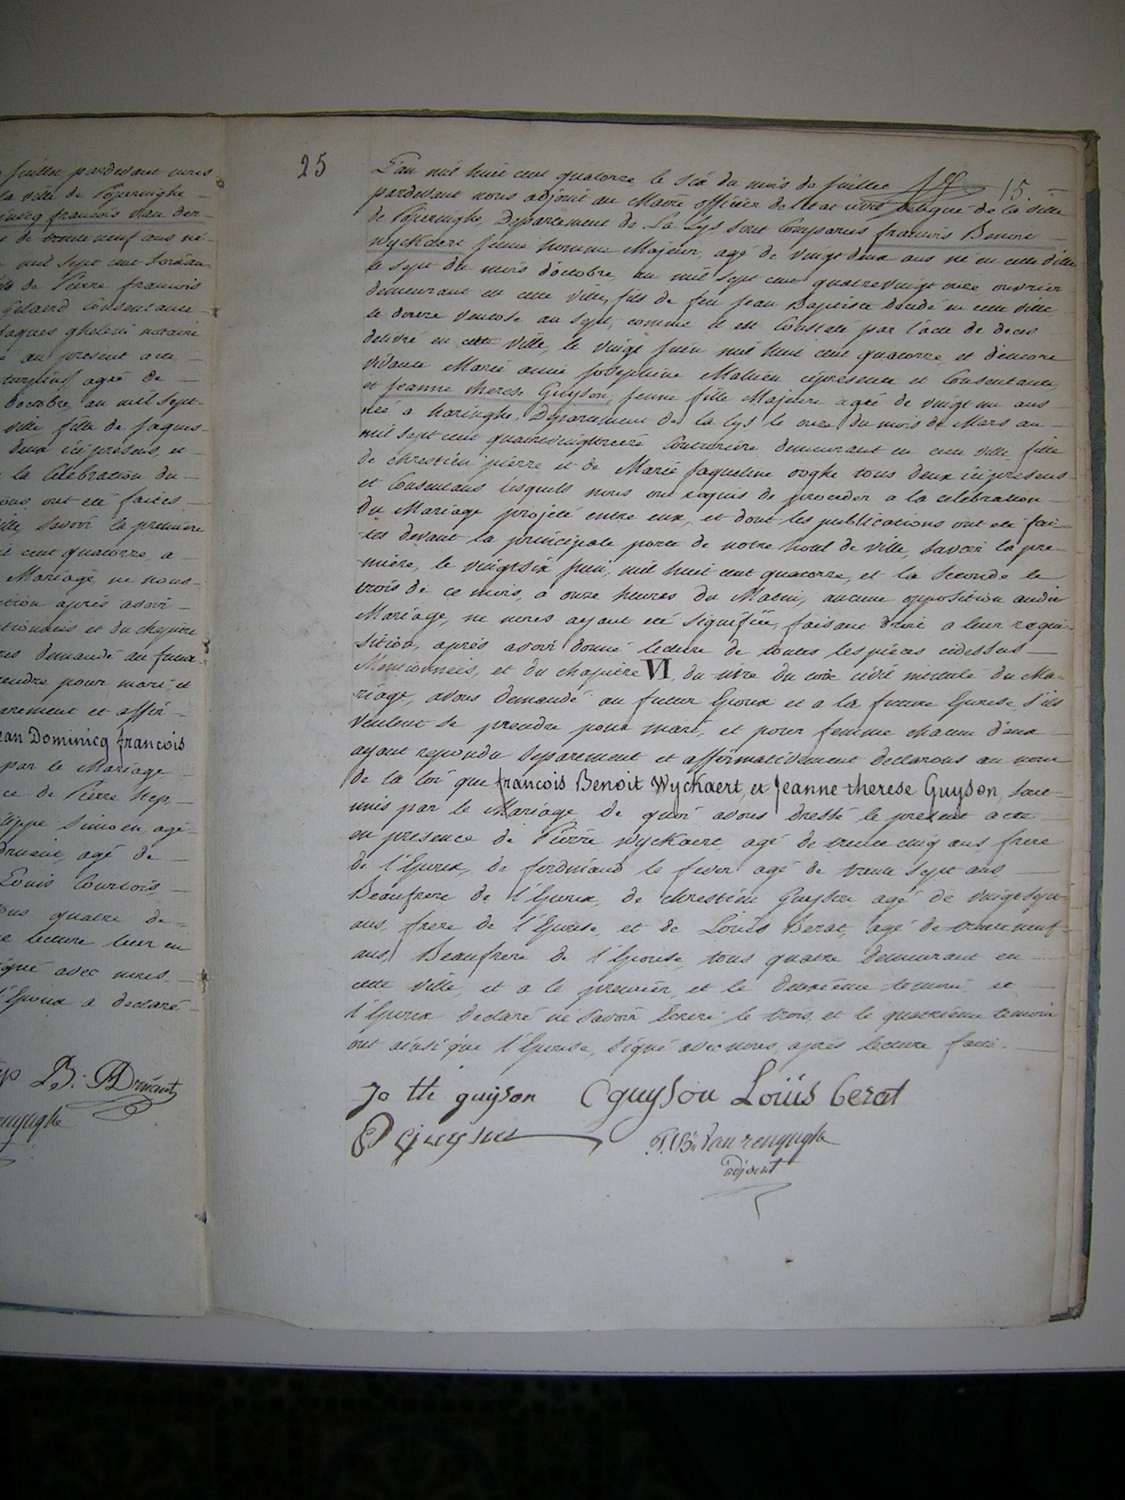 juillet pardevant nous
la ville de Poperinghe
francois van der-
de trente neuf ans né
mil sept cent
de Pierre francois
Consentante
Jaques notaire
au present acte
agé de
d'octobre an mil sept
ville fille de jaques
deux ici presens, et
la Celebration du
nous ont été faites
ville, Savoir la premiere
cent quatorze, a
Mariage ne nous
après avoir
et du chapitre
demandé au futur
prendre pour mari, et
separement et affir-
Jean Dominicq francois
par le Mariage
ce de Pierre
Simoen agé
agé de
Louis Courtois
tous quatre de-
lecture leur en
signé avec nous
l'Epoux a declaré
B: Druant
25
15
L'an mil huit cent quatorze le six du mois de juillet
pardevant nous adjoint au Maire officier de l'etat civil delegué de la ville
de Poperinghe, Departement de La Lys sont Comparus francois Benoit
Wyckaert jeune homme Majeur, agé de vingt deux ans né en cette ville
le sept du mois d'octobre, an mil sept cent quatrevingt onze, ouvrier
demeurant en cette ville, fils de feu jean Baptiste decedé en cette ville
le douze ventose an sept, comme il est Constaté par l'acte de decès
delivré en cette ville, le vingt juin mil huit cent quatorze et d'encore
vivante Marie josephine Mahieu ici presente et Consentante
et jeanne therese Guyson, jeune fille Majeure agée de vingt un ans
née a haringhe Departement de la Lys le onze du mois de Mars an
mil sept cent quatrevingt treize Couturiere demeurant en cette ville fille
de chrestien pierre et de Marie jaqueline ooghe tous deux ici presens
et Consentans lesquels nous ont requis de proceder a la celebration
du Mariage projeté entre eux, et dont les publications ont eté fai-
tes devant la principale porte de notre hotel de ville, Savoir la pre-
miere, le vingt six juin, mil huit cent quatorze, et la Seconde le
trois de ce mois, a onze heures du Matin, aucune opposition audit
Mariage, ne nous ayant eté signifiée, faisant droit a leur requi-
sition, après avoir donné lecture de toutes les pieces cidessus
Mentionneés, et du chapitre VI, du titre du code civil intitulé du Ma-
riage, avons demandé au futur Epoux et a la future Epouse s'ils
veulent se prendre pour mari, et pour femme chacun d'eux
ayant repondu separement et affirmativement declarons au nom
de la loi que francois Benoit Wyckaert, et Jeanne therese Guyson, sont
unis par le Mariage de quoi avons dressé le present acte
en presence de Pierre Wyckaert agé de trente cinq ans frere
de l'Epoux, de ferdinand le fever agé de trente sept ans
Beaufrere de l'Epoux, de chrestien Guyson agé de vingt sept
ans, frere de l'Epouse, et de Louis Berat, agé de trente neuf
ans, Beaufrere de l'Epouse, tous quatre demeurant en
cette ville, et a le premier, et le deuxième temoin et
l'Epoux declaré ne Savoir Ecrire le trois, et le quatrième temoin
ont ainsi que l'Epouse, Signé avec nous, après lecture faite.
Jo the guyson C guyson Louis berat
P guyson
adjoint